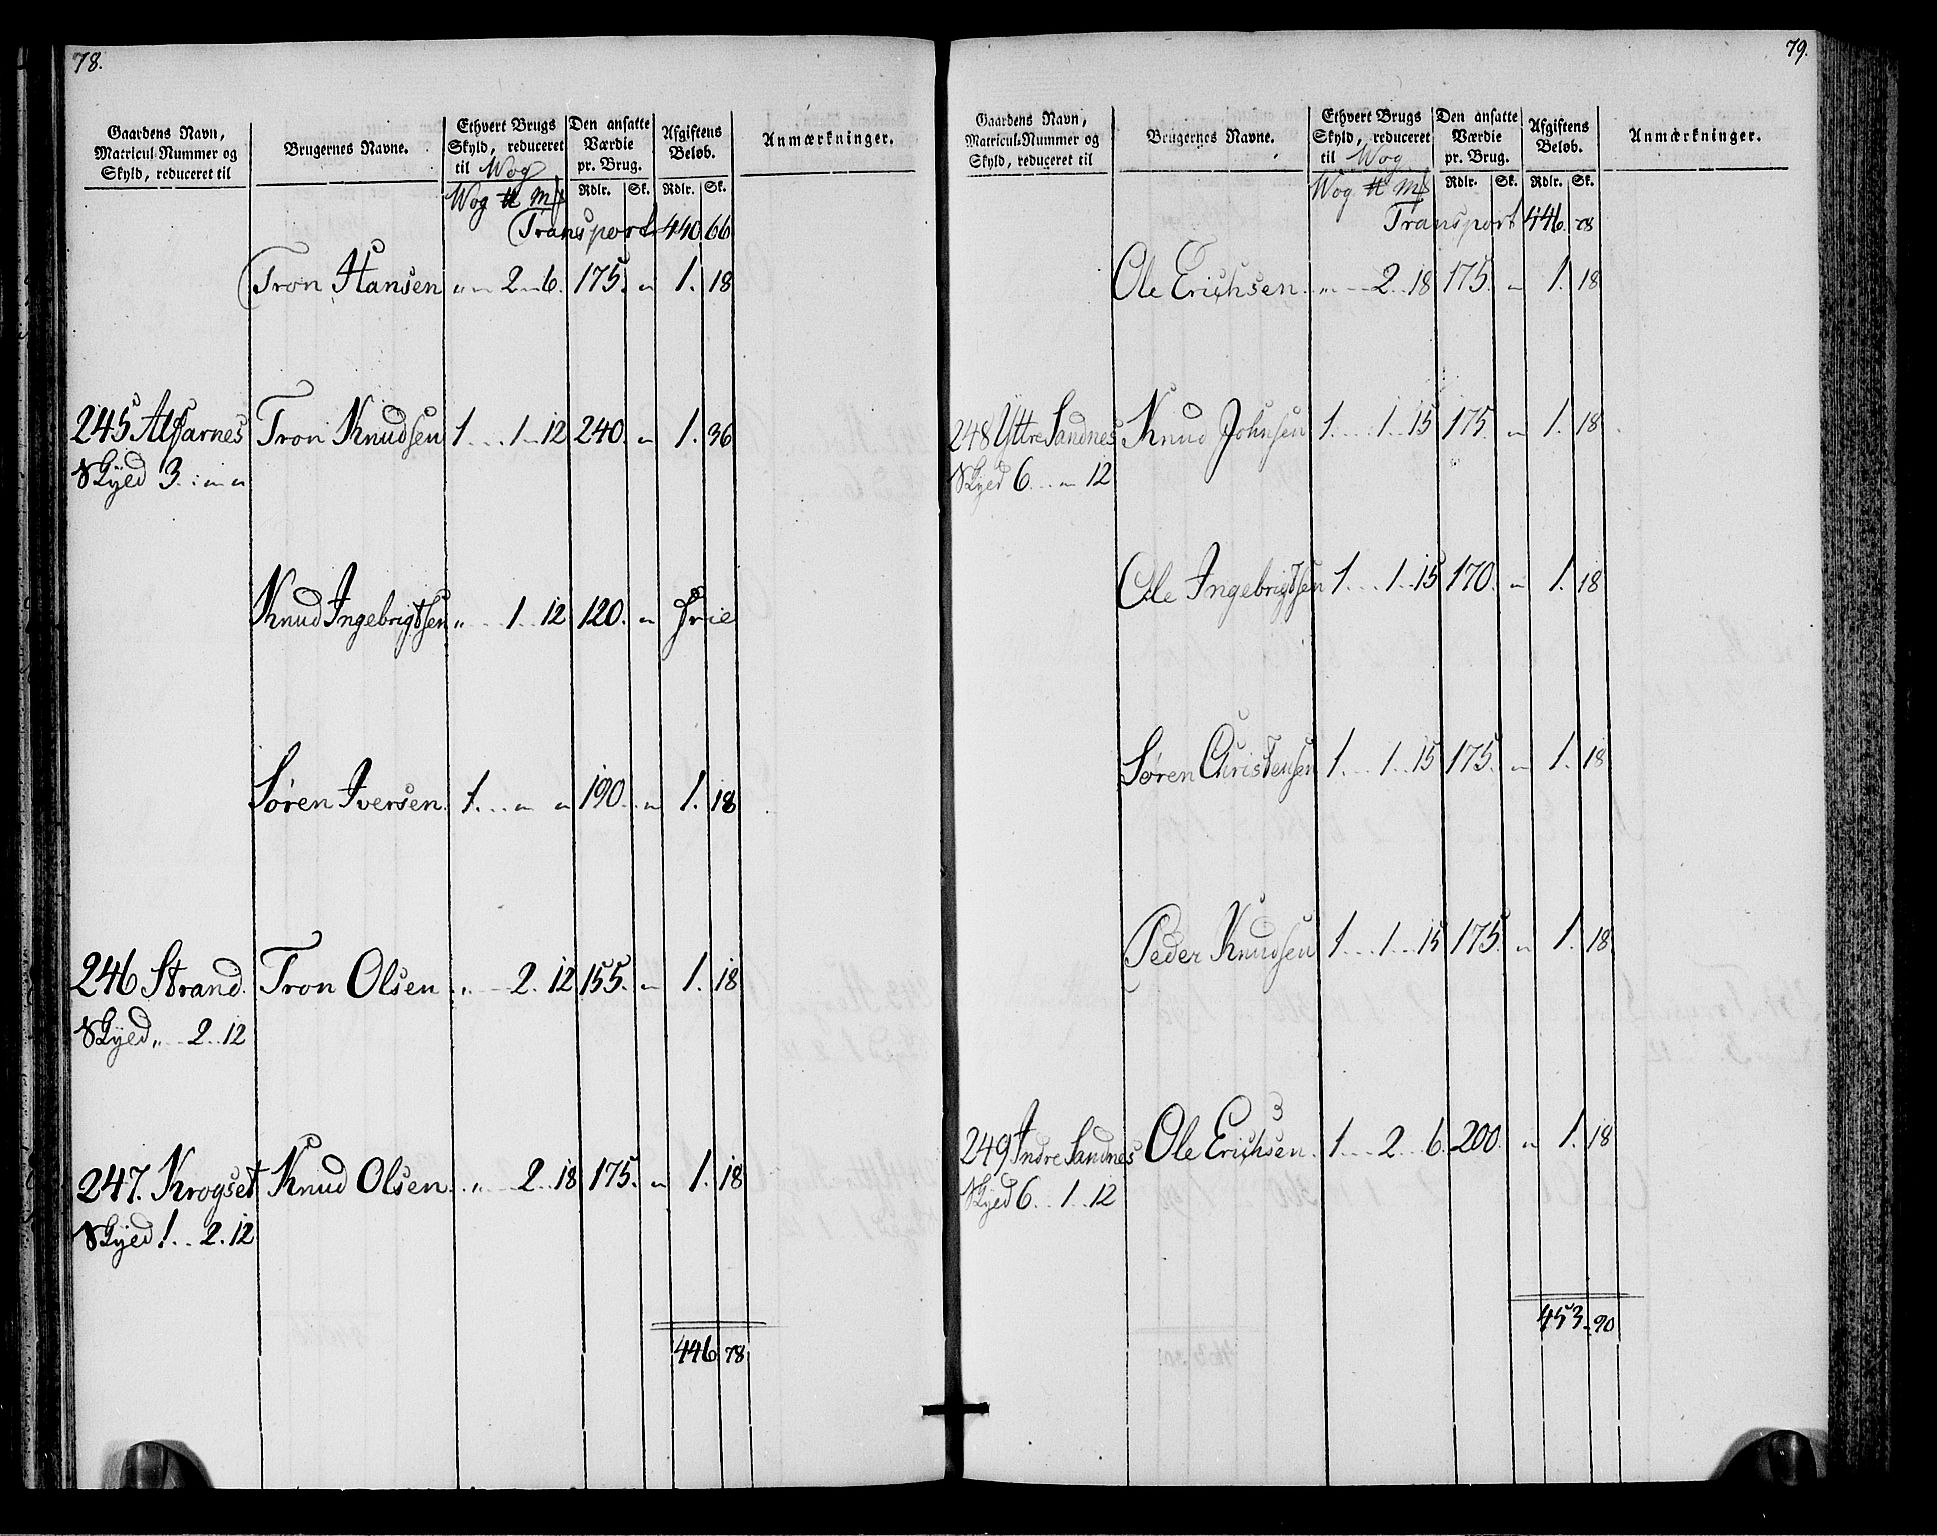 78.
Gaardens Navn, Matricul-Nummer og Skyld, reduceret til
Brugernes Navne.
Ethvert Brugs Skyld, reduceret til Wog
Den ansatte Værdie pr. Brug.
Afgiftens Beløb.
Anmærkninger.
Wog ℔ mf Rdlr. Sk. Rdlr. Sk.
Transport 440. 66
Tron Hansen „ – 2 – 6. 175. „ 1. 18
245 Alfarnes Tron Knudsen 1. . . . 1 – 12 240. „ 1. 36
Skyed 3. . „ „
Knud Ingebrigtsen „ . . . 1 . . 12 120. „ Frie
Søren Iversen. 1. . . „ „ 190. „ 1. 18
246 Strand. Tron Olsen „ . . . 2. 12 155. „ 1. 18
Skyed „ . . 2 . . 12
247. Krogset Knud Olsen „ . . . 2 . . 18 175. „ 1. 18
Skyed 1. . . 2. 12
446. 78
79.
Gaardens Navn, Matricul-Nummer og Skyld, reduceret til
Brugernes Navne.
Ethvert Brugs Skyld, reduceret til Wog
Den ansatte Værdie pr. Brug.
Afgiftens Beløb.
Anmærkninger.
Wog ℔ mf Rdlr. Sk. Rdlr. Sk.
Transport 446. 78
Ole Erichsen. „ . . . 2 . . 18 175. „ 1. 18
248 Yttre Sandnes Knud Johnsen 1. . . . 1 . . 15 175. „ 1. 18.
Skyed 6 . . . „ 12
Ole Ingebrigtsen 1. . . . 1 . . 15 170. „ 1. 18
Søren Christensen 1. . . . 1 . . 15 175. „ 1. 18
Peder Knudsen 1. . . . 1 . . 15 175. „ 1. 18
249 Indre Sandnes Ole Erichsen. 1. . . . 2 . . . 6. 200. „ 1. 18
Skyed 6. . . 1 . . 12
453. 90